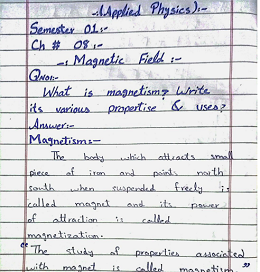 :(Applied Physics):-
Semester 01:-
Ch # 08:-
-: Magnetic Field :-
QNo1:-
What is magnetism? Write
its various propertise & uses?
Answer:-
Magnetism:-
The body which attracts small
piece of iron and points north
south when suspended freely is
called magnet and its power
of attraction is called
magnetization.
"The study of properties associated
with magnet is called magnetism."